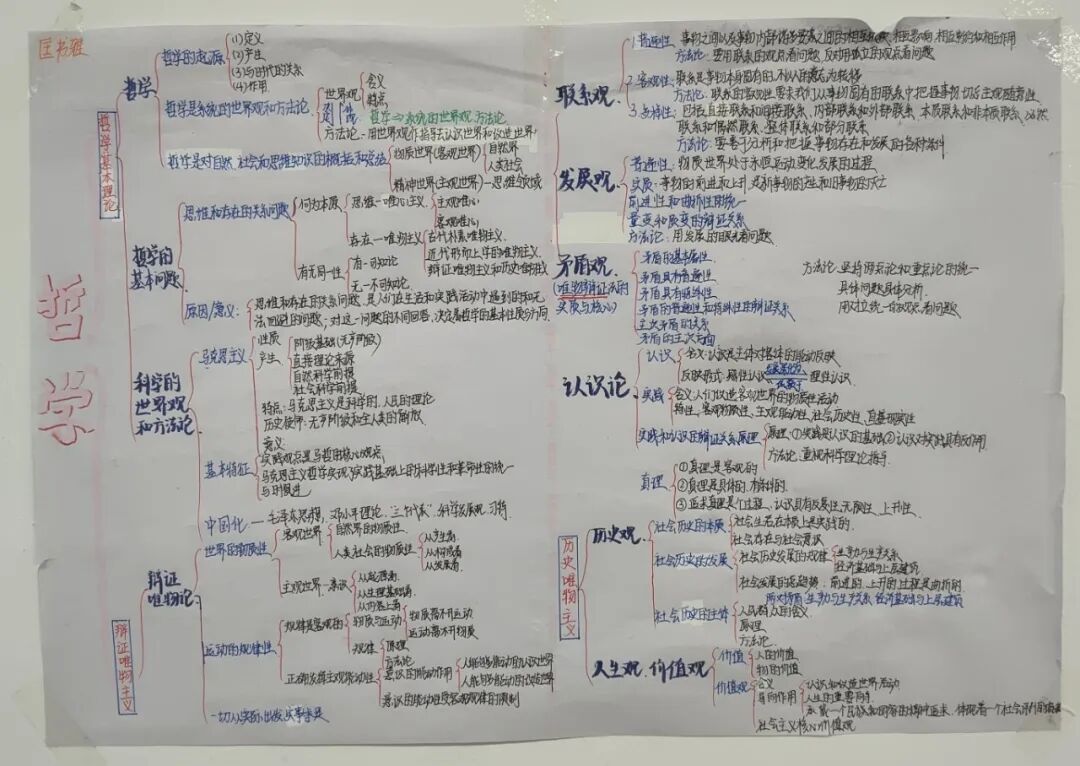 匡书雅
哲学
哲学基本理论
哲学
哲学的起源
(1)定义
(2)产生
(3)与时代的关系
(4)作用
哲学是系统的世界观和方法论
世界观
含义
特点
哲学⇒系统的世界观、方法论
方法论-用世界观作指导去认识世界和改造世界
哲学是对自然、社会和思维知识的概括和总结
物质世界(客观世界)
自然界
人类社会
精神世界(主观世界)-思维领域
哲学的
基本问题
思维和存在的关系问题
何为本原
思维-唯心主义
主观唯心
客观唯心
存在-唯物主义
古代朴素唯物主义
近代形而上学的唯物主义
辩证唯物主义和历史唯物主义
有无同一性
有-可知论
无-不可知论
原因/意义:
思维和存在的关系问题,是人们在生活和实践活动中遇到的和无
法回避的问题;对这一问题的不同回答,决定着哲学的基本性质和方向
科学的
世界观
和方法论
马克思主义
性质
产生
阶级基础(无产阶级)
直接理论来源
自然科学前提
社会科学前提
特点:马克思主义是科学的、人民的理论
历史使命:无产阶级和全人类的解放
意义
基本特征
实践观点是马哲的核心观点
马克思主义哲学实现了实践基础上的科学性和革命性的统一
与时俱进
中国化—毛泽东思想,邓小平理论,“三个代表”,科学发展观,习特
辩证唯物主义
辩证
唯物论
世界的物质性
客观世界
自然界的物质性
人类社会的物质性
从产生看
从构成看
从发展看
主观世界-意识
从起源看
从生理基础看
从内容上看
运动的规律性
规律是客观的
物质与运动
物质离不开运动
运动离不开物质
规律
原理
方法论
正确发挥主观能动性
意识的能动作用
人能够能动的认识世界
人能够能动的改造世界
意识的能动性受客观规律的限制
一切从实际出发,实事求是
联系观
1.普遍性:事物之间以及事物内部诸要素之间的相互影响,相互制约和相互作用
方法论:要用联系的观点看问题,反对用孤立的观点看问题
2.客观性:联系是事物本身固有的,不以人的意志为转移
方法论:联系的客观性要求我们从事物固有的联系中把握事物,切忌主观随意性
3.多样性:包括直接联系和间接联系、内部联系和外部联系、本质联系和非本质联系、必然
联系和偶然联系、整体联系和部分联系
方法论:要善于分析和把握事物存在和发展的各种条件
发展观
普遍性:物质世界处于永恒运动变化发展的过程
实质:事物的前进和上升,是新事物的产生和旧事物的灭亡
前进性和曲折性的统一
量变和质变的辩证关系
方法论:用发展的眼光看问题
矛盾观
(唯物辩证法的
实质与核心)
矛盾的基本属性
矛盾具有普遍性
矛盾具有特殊性
矛盾的普遍性和特殊性的辩证关系
主次矛盾的关系
矛盾的主次方面
方法论:坚持两点论和重点论的统一
具体问题具体分析
用对立统一的观点看问题
认识论
认识
含义:认识是主体对客体的能动反映
反映形式:感性认识
理性认识
实践
含义:人们改造客观世界的物质性活动
特性:客观物质性、主观能动性、社会历史性、直接现实性
实践和认识的辩证关系原理
原理:①实践是认识的基础②认识对实践具有反作用
方法论:重视科学理论指导
真理
①真理是客观的
②真理是具体的、有条件的
③追求真理是个过程,认识具有反复性、无限性、上升性
历史唯物主义
历史观
社会历史的本质
社会生活在本质上是实践的
社会存在与社会意识
社会历史的发展
社会历史发展的规律
生产力与生产关系
经济基础与上层建筑
社会发展的总趋势:前进的、上升的过程是曲折的
生产力与生产关系 经济基础与上层建筑
社会历史的主体
人民群众的含义
原理
方法论
人生观、价值观
价值
人的价值
物的价值
价值观
含义
导向作用
认识和改造世界活动
人生的重要向导
社会主义核心价值观